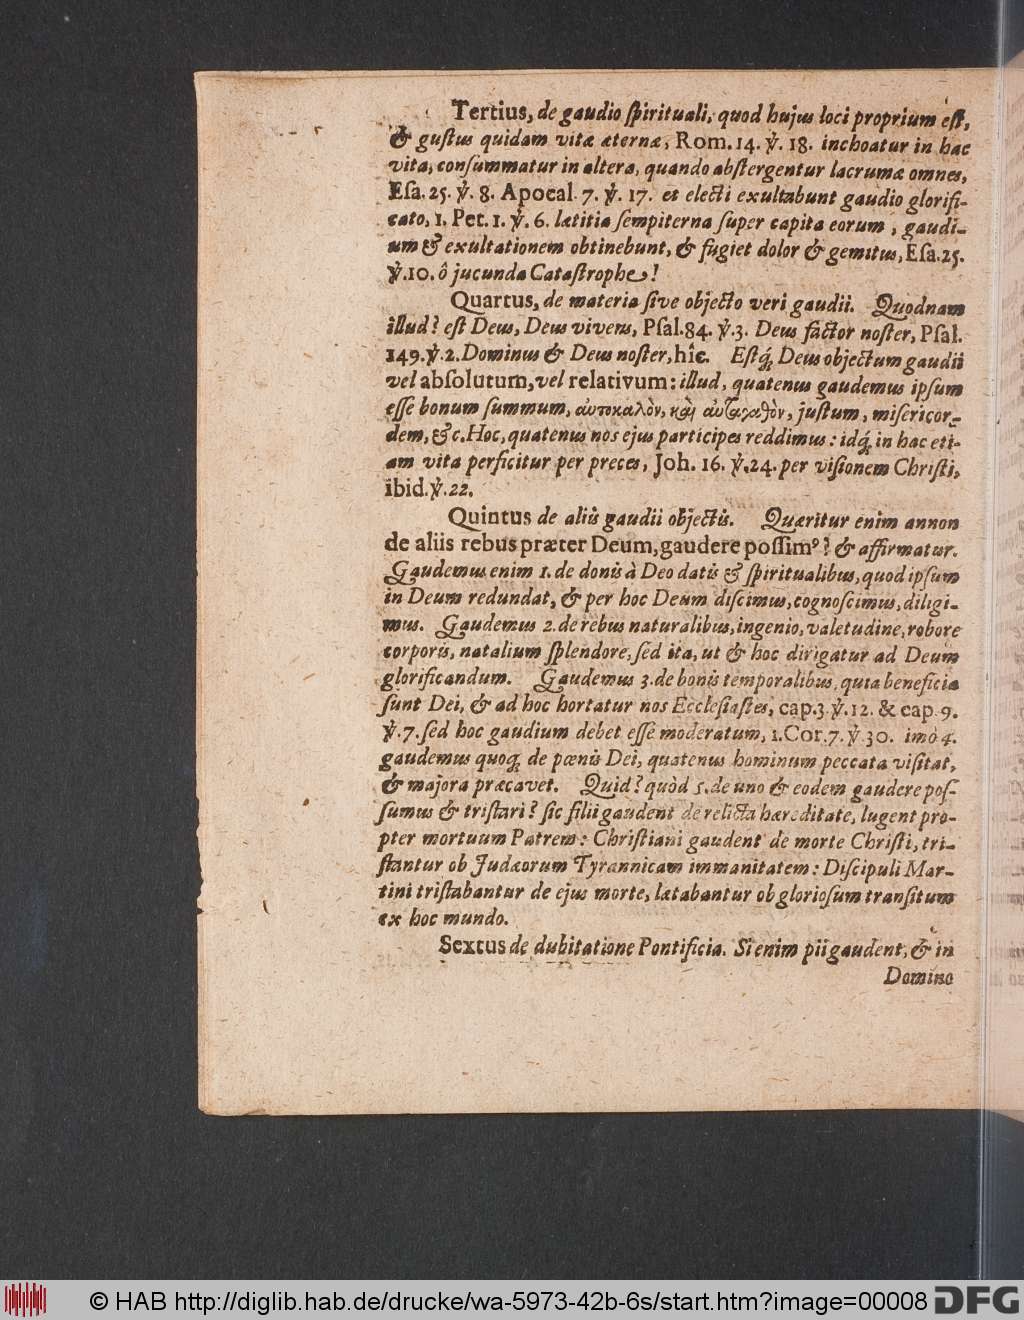 Tertius, de gaudio ſpirituali, quod hujus loci proprium eſt,
& guſtus quidam vitæ æternæ, Rom. 14. ℣. 18. inchoatur in hac
vita, conſummatur in altera, quando abſtergentur lacrumæ omnes,
Eſa. 25. ℣. 8. Apocal. 7. ℣. 17. et electi exultabunt gaudio glorifi-
cato, 1. Pet. 1. ℣. 6. lætitia ſempiterna ſuper capita eorum, gaudi-
um & exultationem obtinebunt, & fugiet dolor & gemitus, Eſa. 25.
℣. 10. ô jucunda Cataſtrophe!
Quartus, de materia ſive objecto veri gaudii. Quodnam
illud? eſt Deus, Deus vivens, Pſal. 84. ℣. 3. Deus factor noſter, Pſal.
149. ℣. 2. Dominus & Deus noſter, hîc. Eſtq́; Deus objectum gaudii
vel abſolutum, vel relativum: illud, quatenus gaudemus ipſum
eſſe bonum ſummum, αὐτοκαλὸν, καὶ αὐταγαθὸν, juſtum, miſericor-
dem, &c. Hoc, quatenus nos ejus participes reddimus: idq́; in hac eti-
am vita perficitur per preces, Joh. 16. ℣. 24. per viſionem Chriſti,
ibid. ℣. 22.
Quintus de aliis gaudii objectis. Quæritur enim annon
de aliis rebus præter Deum, gaudere poſſimꝰ? & affirmatur.
Gaudemus enim 1. de donis à Deo datis & ſpiritualibus, quod ipſum
in Deum redundat, & per hoc Deum diſcimus, cognoſcimus, diligi-
mus. Gaudemus 2. de rebus naturalibus, ingenio, valetudine, robore
corporis, natalium ſplendore, ſed ita, ut & hoc dirigatur ad Deum
glorificandum. Gaudemus 3. de bonis temporalibus, quia beneficia
ſunt Dei, & ad hoc hortatur nos Eccleſiaſtes, cap. 3. ℣. 12. & cap. 9.
℣. 7. ſed hoc gaudium debet eſſe moderatum, 1. Cor. 7. ℣ 30. imò 4.
gaudemus quoq; de pœnis Dei, quatenus hominum peccata viſitat,
& majora præcavet. Quid? quòd 5. de uno & eodem gaudere poſ-
ſumus & triſtari? ſic filii gaudent de relicta hæreditate, lugent pro-
pter mortuum Patrem: Chriſtiani gaudent de morte Chriſti, tri-
ſtantur ob Judæorum Tyrannicam immanitatem: Diſcipuli Mar-
tini triſtabantur de ejus morte, lætabantur ob glorioſum tranſitum
ex hoc mundo.
Sextus de dubitatione Pontificia. Si enim pii gaudent, & in
Domino
© HAB http://diglib.hab.de/drucke/wa-5973-42b-6s/start.htm?image=00008
DFG